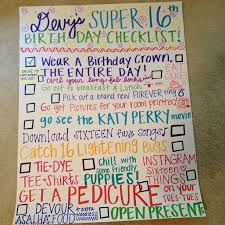 Devy's SUPER 16th
BIRTHDAY CHECKLIST!
WEAR A BIRTHDAY CROWN,
THE ENTIRE DAY!
Go out to breakfast & Lunch
Pick out a brand new FOREVER ring
Go get Pictures for your room printed
go see the KATY PERRY movie
Download SIXTEEN five songs!
Catch 16 Lightening Bugs
TIE-DYE
TEE-SHIRTS
chill with
some friendly
PUPPIES!
INSTAGRAM
SIXTEEN
THINGS
Get PEDICURE
on your
TOES-TOES
DEVOUR
FOOD
OPEN PRESENT